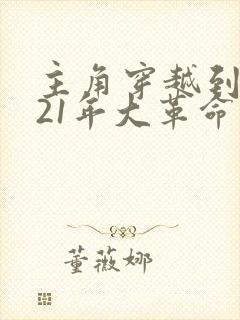 主角穿越到
21年大革命
董薇娜